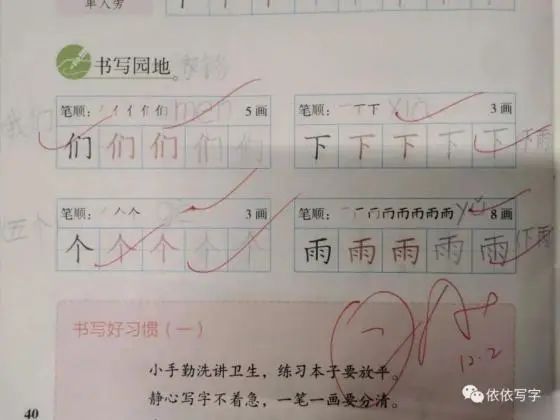 单人旁
书写园地
我们 笔顺: men 5画
们 们 们 们 们
笔顺: 一丁下 xià 3画
下 下 下 下 下 下雨
五个 笔顺: 丿人个 gè 3画
个 个 个 个 个
笔顺: yǔ 8画
雨 雨 雨 雨 雨 下雨
书写好习惯(一)
小手勤洗讲卫生,练习本子要放平。
静心写字不着急,一笔一画要分清。
A+
12.2
40
依依写字